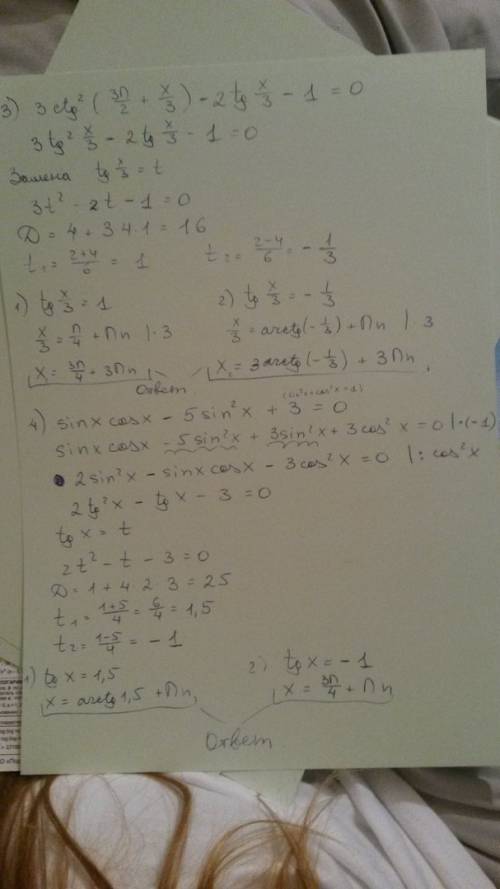 3) 3 ctg² (3π/2 + x/3) - 2 tg x/3 - 1 = 0
3 tg² x/3 - 2 tg x/3 - 1 = 0
Замена tg x/3 = t
3t² - 2t - 1 = 0
D = 4 + 3·4·1 = 16
t₁ = (2+4)/6 = 1 t₂ = (2-4)/6 = - 1/3
1) tg x/3 = 1 2) tg x/3 = - 1/3
x/3 = π/4 + πn |·3 x/3 = arctg(-1/3) + πn | 3
x = 3π/4 + 3πn, x₂ = 3arctg(-1/3) + 3πn,
Ответ
(sin²x+cos²x=1)
4) sinx cosx - 5 sin²x + 3 = 0
sinx cosx - 5 sin²x + 3sin²x + 3 cos²x = 0 |·(-1)
2 sin²x - sinx cosx - 3 cos²x = 0 |: cos²x
2 tg²x - tg x - 3 = 0
tg x = t
2t² - t - 3 = 0
D = 1 + 4·2·3 = 25
t₁ = (1+5)/4 = 6/4 = 1,5
t₂ = (1-5)/4 = - 1
1) tg x = 1,5 2) tg x = - 1
x = arctg 1,5 + πn, x = 3π/4 + πn
Ответ